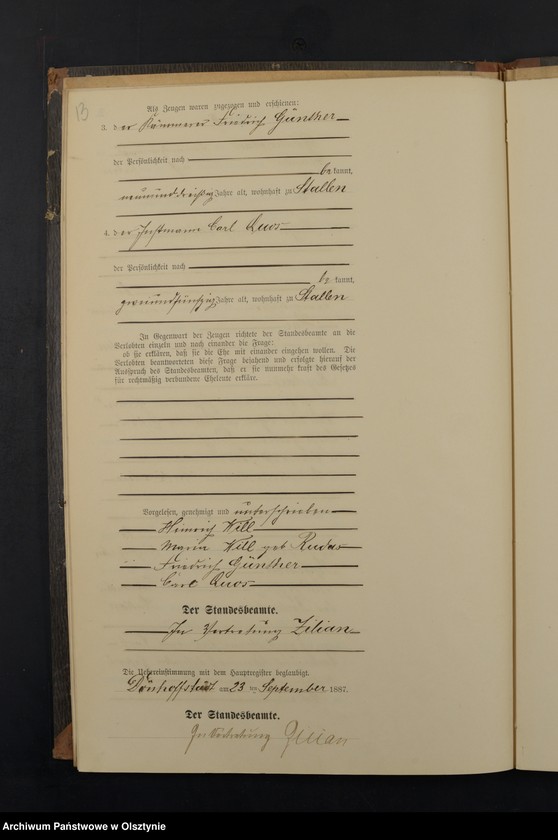 13
Als Zeugen waren zugezogen und erschienen:
3. der Kämmerer Friedrich Günther
der Persönlichkeit nach
bekannt,
neununddreißig Jahre alt, wohnhaft zu Stallen
4. der Instmann Carl Quos
der Persönlichkeit nach
bekannt,
zweiundfünfzig Jahre alt, wohnhaft zu Stallen
In Gegenwart der Zeugen richtete der Standesbeamte an die
Verlobten einzeln und nach einander die Frage:
ob sie erklären, daß sie die Ehe mit einander eingehen wollen. Die
Verlobten beantworteten diese Frage bejahend und erfolgte hierauf der
Ausspruch des Standesbeamten, daß er sie nunmehr kraft des Gesetzes
für rechtmäßig verbundene Eheleute erkläre.
Vorgelesen, genehmigt und unterschrieben
Heinrich Will
Maria Will geb Rudas
Friedrich Günther
Carl Quos
Der Standesbeamte.
In Vertretung Zilian
Die Uebereinstimmung mit dem Hauptregister beglaubigt.
Dönhoffstädt am 23 ten September 1887.
Der Standesbeamte.
In Vertretung Zilian
Archiwum Państwowe w Olsztynie